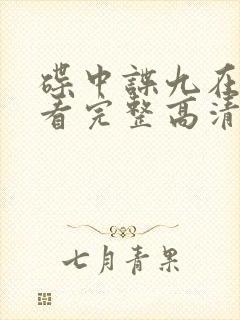 碟中諜九在
看完整高清
七月青果